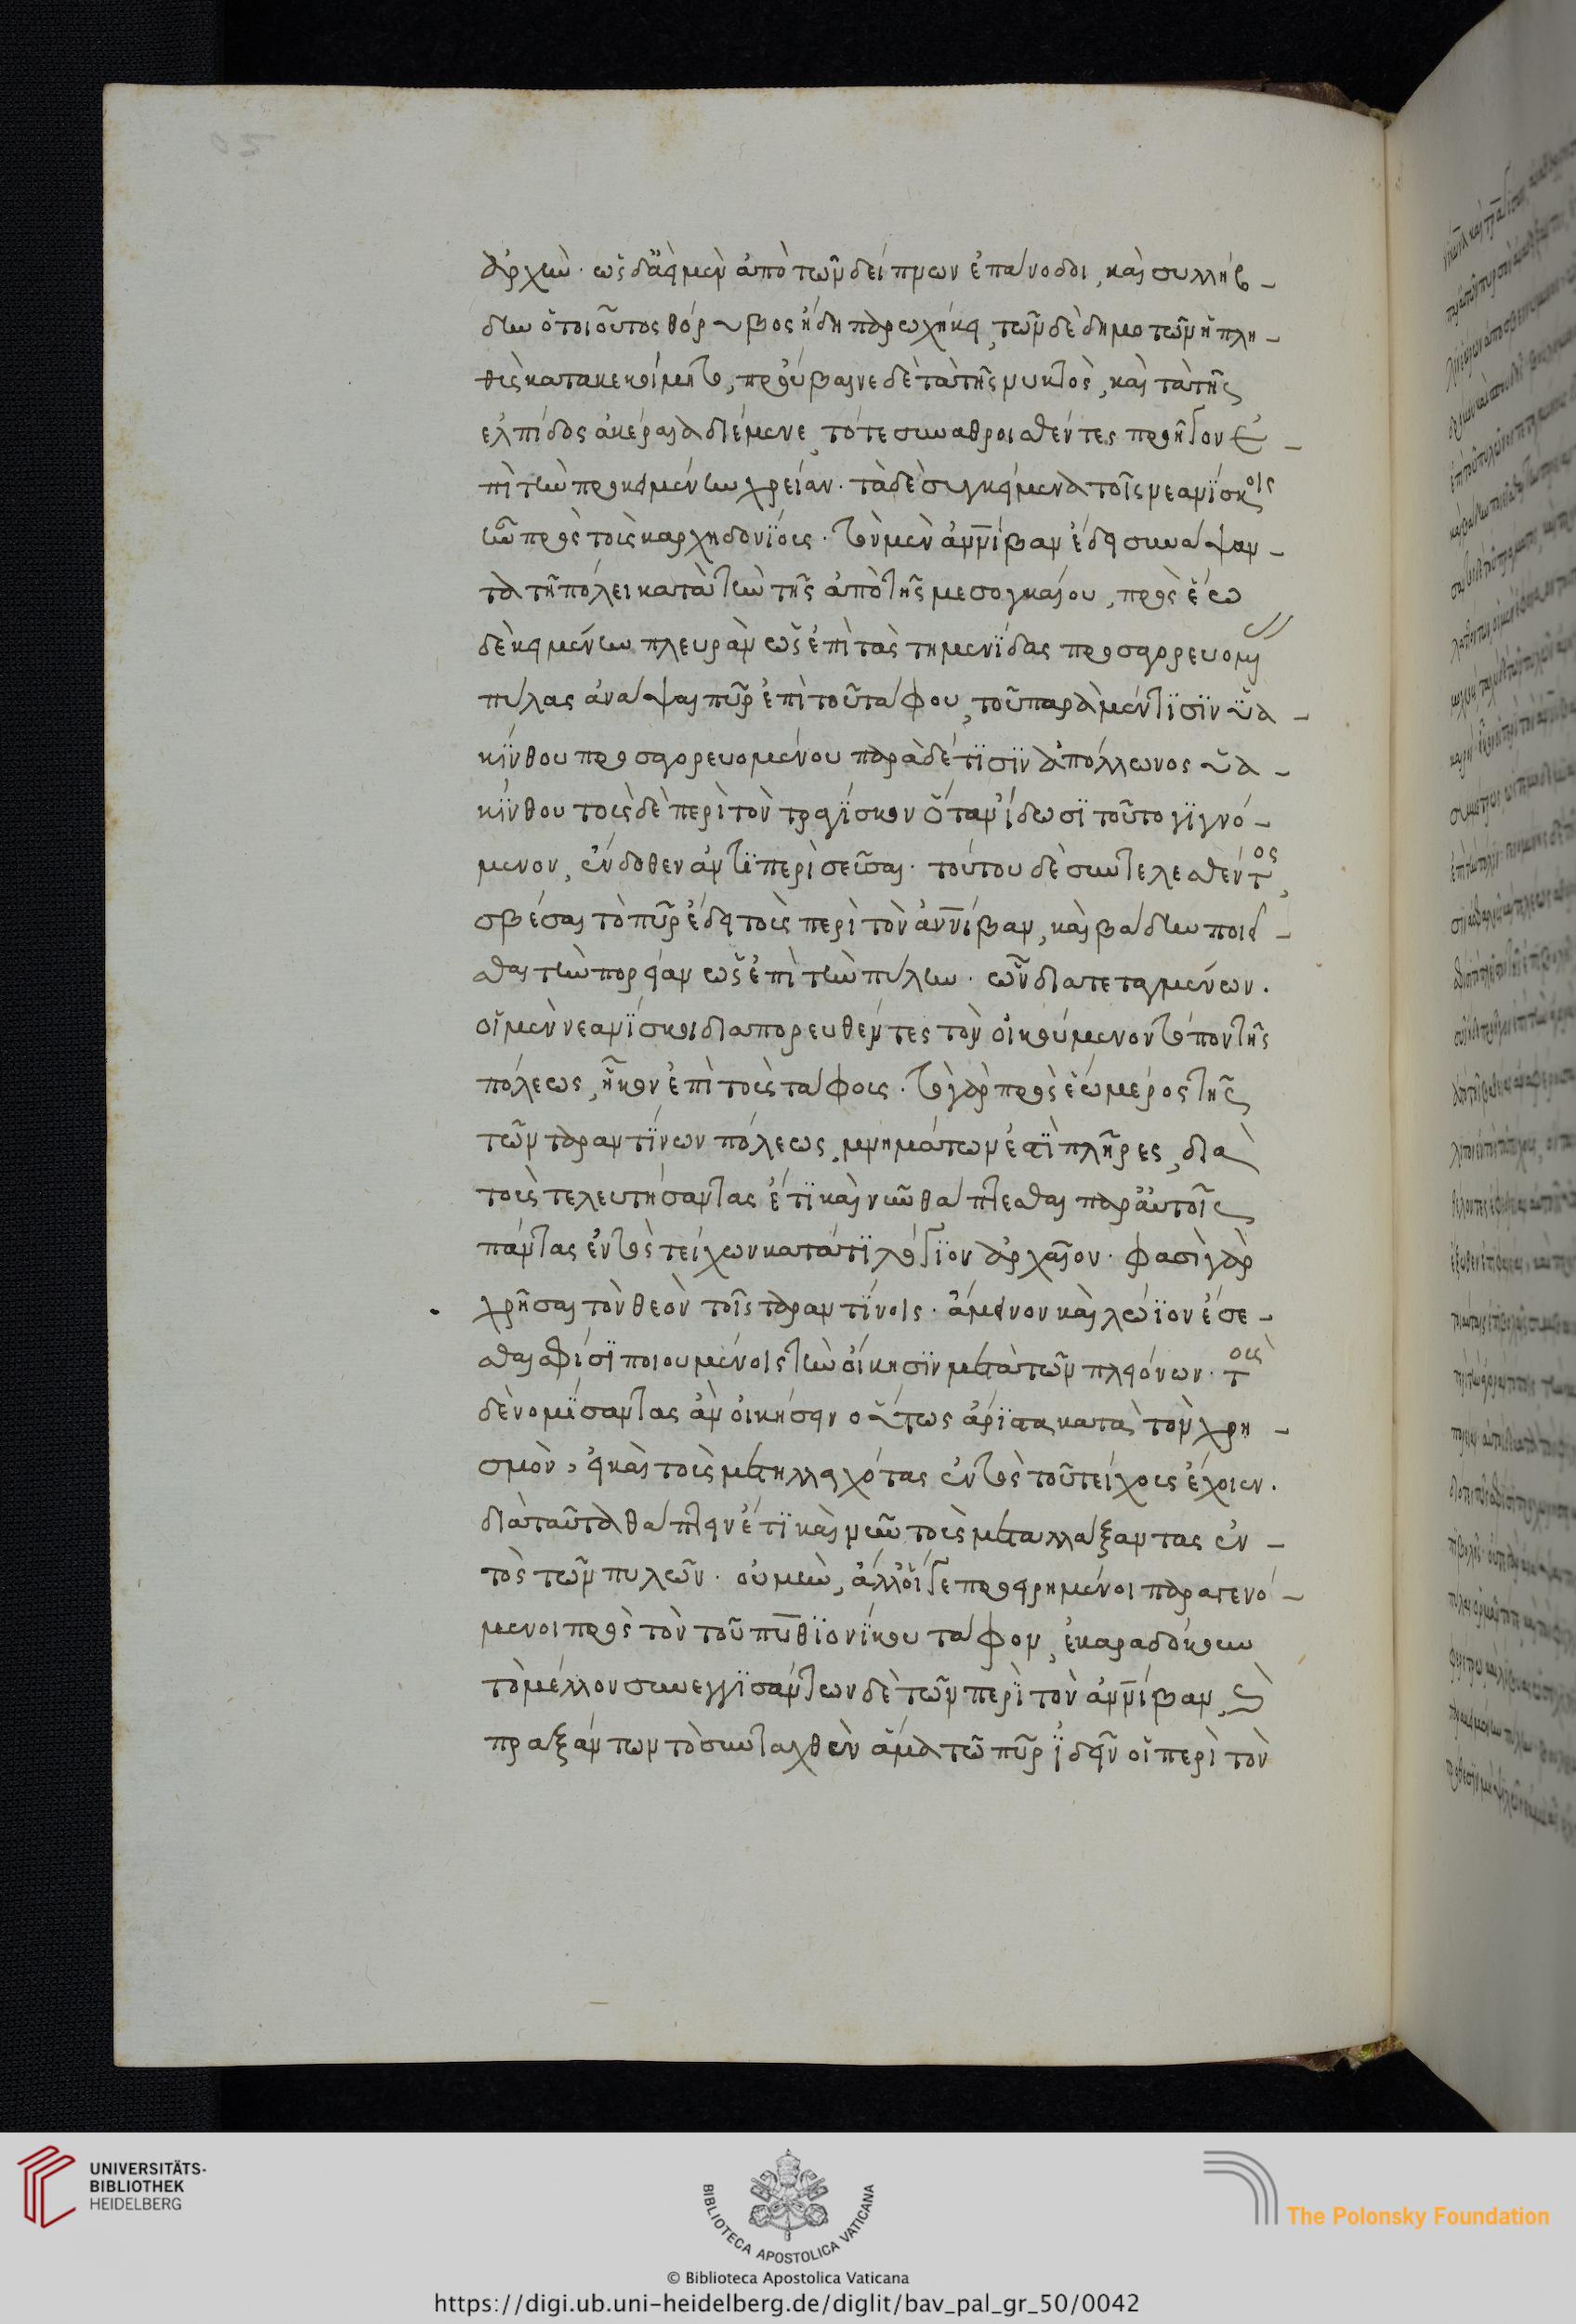 ἀρχὴν· ὡς δ' αἱ μὲν ἀπὸ τῶν δείπνων ἐπάνοδοι, καὶ συλλήβ-
δην ὁ τοιοῦτος θόρυβος ἤδη παρωχήκει, τῶν δὲ δημοτῶν ἡ πλη-
θὺς κατακεκοίμητο, προύβαινε δὲ τὰ τῆς νυκτὸς, καὶ τὰ τῆς
ἐλπίδος ἀκέραια διέμενε, τότε συναθροισθέντες προῆγον ἐ-
πὶ τὴν προκειμένην χρείαν. τὰ δὲ συγκείμενα τοῖς νεανίσκοις
ἦν πρὸς τοὺς καρχηδονίους. τὸν μὲν ἀννίβαν ἔδει συνάψαν-
τα τῇ πόλει κατὰ τὴν τῆς ἀπὸ τῆς μεσογκαίου, πρὸς ἕω
δὲ κειμένην πλευρὰν ὡς ἐπὶ τὰς τημενίδας προσαγορευομέ
πύλας ἀνάψαι πῦρ ἐπὶ τοῦ τάφου, τοῦ παρὰ μέν τισιν ὑα-
κίνθου προσαγορευομένου παρὰ δέ τισιν ἀπόλλωνος ὑα-
κίνθου τοὺς δὲ περὶ τὸν τραγίσκον ὅταν ἴδωσι τοῦτο γιγνό-
μενον, ἔνδοθεν ἀντιπερισεῦσαι. τούτου δὲ συντελεσθέντος,
σβέσαι τὸ πῦρ ἔδει τοὺς περὶ τὸν ἀννίβαν, καὶ βάδην ποιεῖ-
σθαι τὴν πορείαν ὡς ἐπὶ τὴν πύλην. ὧν διατεταγμένων.
οἱ μὲν νεανίσκοι διαπορευθέντες τὸν οἰκούμενον τόπον τῆς
πόλεως, ἧκον ἐπὶ τοὺς τάφους. τὸ γὰρ πρὸς ἕω μέρος τῆς
τῶν ταραντίνων πόλεως, μνημάτων ἐστὶ πλῆρες, διὰ
τοὺς τελευτήσαντας ἔτι καὶ νῦν θάπτεσθαι παρ' αὐτοῖς
πάντας ἐντὸς τειχῶν κατά τι λόγιον ἀρχαῖον. φασὶ γὰρ
χρῆσαι τὸν θεὸν τοῖς ταραντίνοις. ἄμεινον καὶ λώϊον ἔσε-
σθαι σφίσι ποιουμένοις τὴν οἴκησιν μετὰ τῶν πλειόνων. τοὺς
δὲ νομίσαντας ἂν οἰκήσειν οὕτως ἄριστα κατὰ τὸν χρη-
σμὸν, εἰ καὶ τοὺς μετηλλαχότας ἐντὸς τοῦ τείχους ἔχοιεν.
διὰ ταῦτα θάπτειν ἔτι καὶ νῦν τοὺς μεταλλάξαντας ἐν-
τὸς τῶν πυλῶν. οὐ μὴν, ἀλλ' οἵ γε προειρημένοι παραγενό-
μενοι πρὸς τὸν τοῦ πυθιονίκου τάφον, ἐκαραδόκουν
τὸ μέλλον συνεγγισάντων δὲ τῶν περὶ τὸν ἀννίβαν, καὶ
πραξάντων τὸ συνταχθὲν ἅμα τῶ πῦρ ἰδεῖν οἱ περὶ τὸν
UNIVERSITÄTS-
BIBLIOTHEK
HEIDELBERG
BIBLIOTECA APOSTOLICA VATICANA
The Polonsky Foundation
© Biblioteca Apostolica Vaticana
https://digi.ub.uni-heidelberg.de/diglit/bav_pal_gr_50/0042